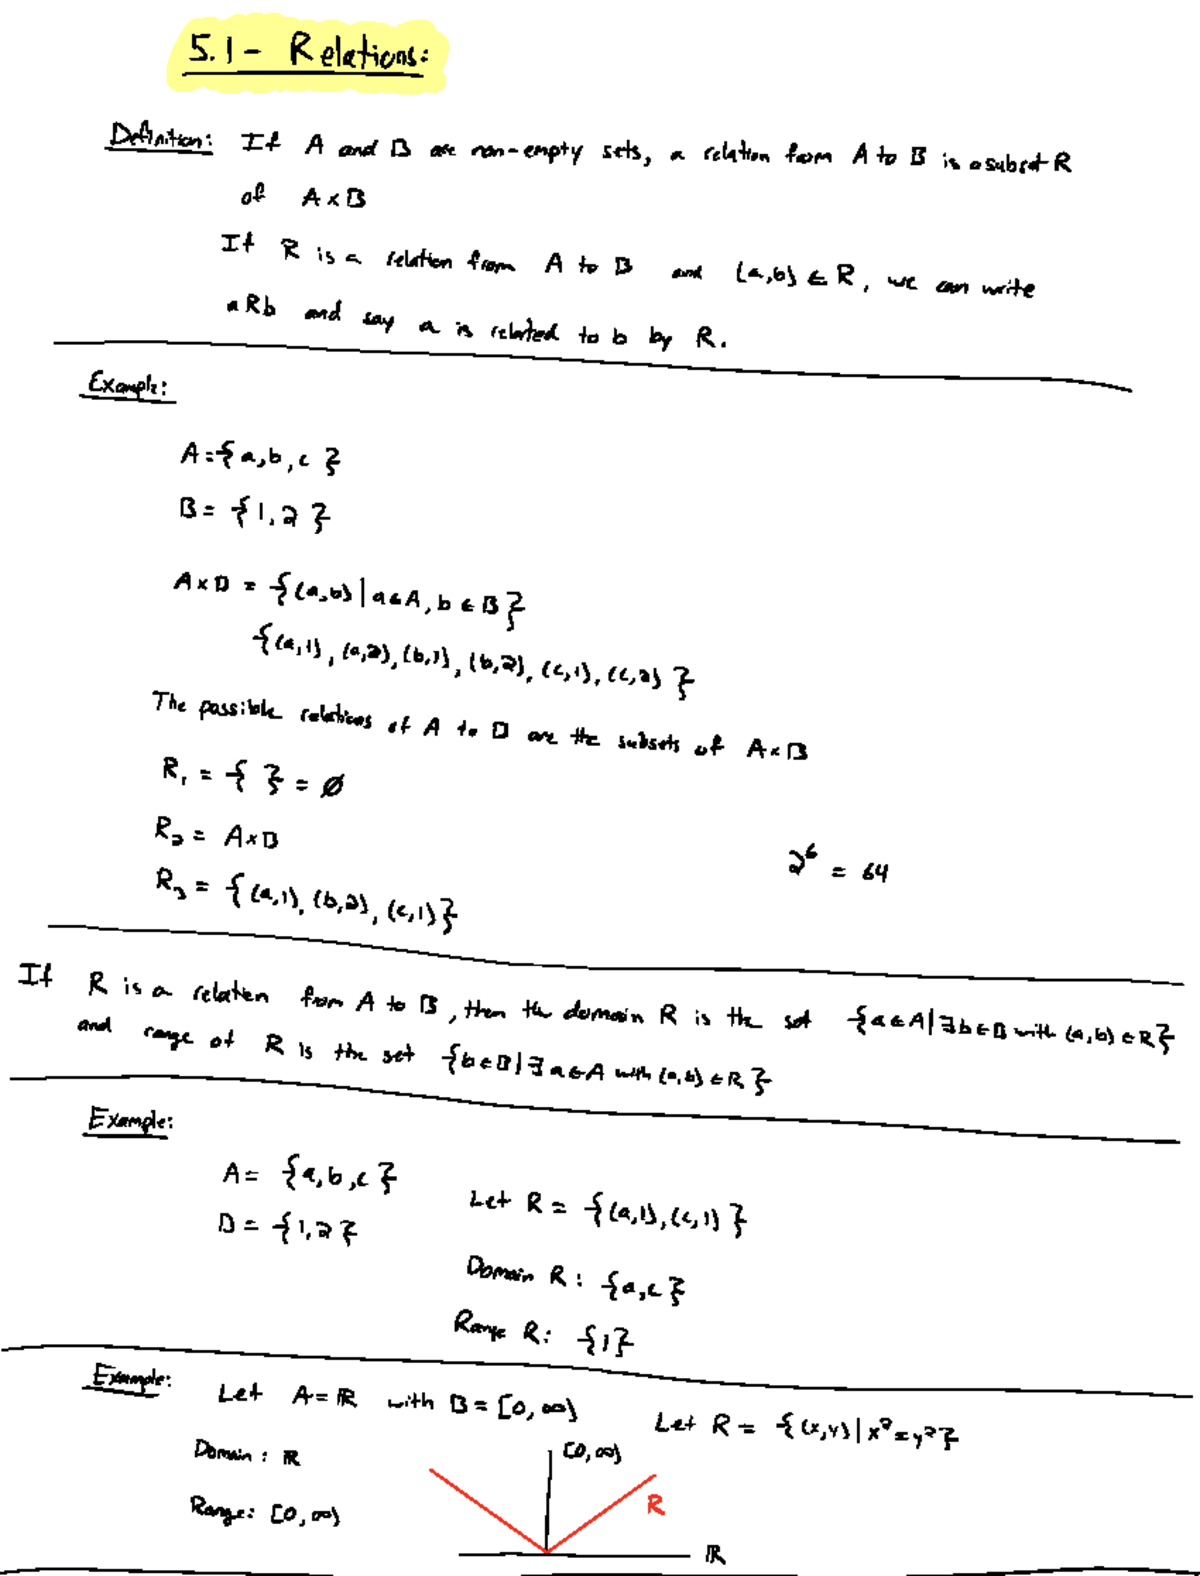 5.1 - Relations:
Definition: If A and B are non-empty sets, a relation from A to B is a subset R
of A × B
If R is a relation from A to B and (a,b) ∈ R, we can write
aRb and say a is related to b by R.
Example:
A = {a, b, c}
B = {1, 2}
A × B = {(a,b) | a ∈ A, b ∈ B}
{(a,1), (a,2), (b,1), (b,2), (c,1), (c,2)}
The possible relations of A to B are the subsets of A × B
R₁ = { } = ∅
R₂ = A × B
2⁶ = 64
R₃ = {(a,1), (b,2), (c,1)}
If R is a relation from A to B, then the domain R is the set {a ∈ A | ∃ b ∈ B with (a,b) ∈ R}
and range of R is the set {b ∈ B | ∃ a ∈ A with (a,b) ∈ R}
Example:
A = {a, b, c}
Let R = {(a,1), (c,1)}
B = {1, 2}
Domain R: {a, c}
Range R: {1}
Example: Let A = ℝ with B = [0, ∞) Let R = {(x,y) | x² = y²}
Domain: ℝ
[0, ∞)
R
Range: [0, ∞)
ℝ